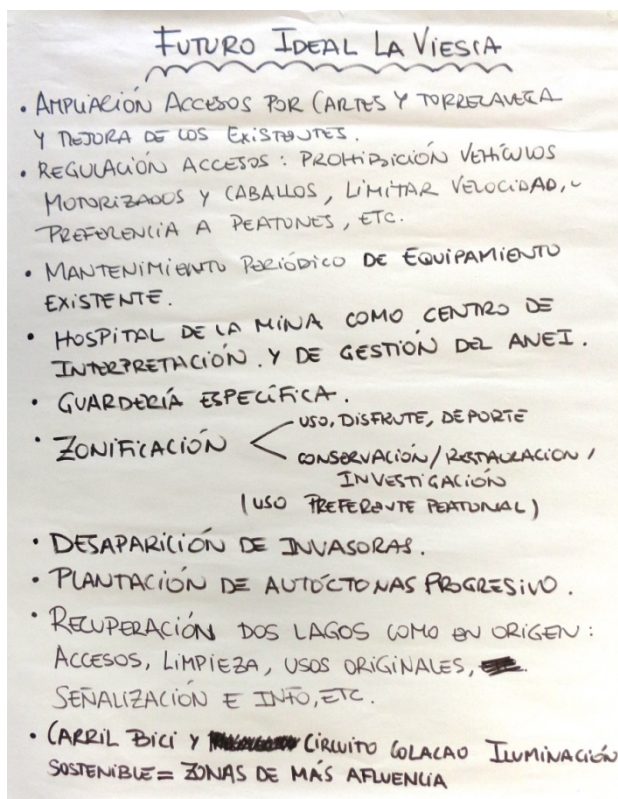 FUTURO IDEAL LA VIESCA
• AMPLIACIÓN ACCESOS POR CARTES Y TORRELAVEGA
Y MEJORA DE LOS EXISTENTES.
• REGULACIÓN ACCESOS: PROHIBICIÓN VEHÍCULOS
MOTORIZADOS Y CABALLOS, LIMITAR VELOCIDAD,
PREFERENCIA A PEATONES, ETC.
• MANTENIMIENTO PERIÓDICO DE EQUIPAMIENTO
EXISTENTE.
• HOSPITAL DE LA MINA COMO CENTRO DE
INTERPRETACIÓN. Y DE GESTIÓN DEL ANEI.
• GUARDERÍA ESPECÍFICA.
• ZONIFICACIÓN < USO, DISFRUTE, DEPORTE
CONSERVACIÓN / RESTAURACIÓN /
INVESTIGACIÓN
(USO PREFERENTE PEATONAL)
• DESAPARICIÓN DE INVASORAS.
• PLANTACIÓN DE AUTÓCTONAS PROGRESIVO.
• RECUPERACIÓN DOS LAGOS COMO EN ORIGEN:
ACCESOS, LIMPIEZA, USOS ORIGINALES,
SEÑALIZACIÓN E INFO, ETC.
• CARRIL BICI Y CIRCUITO COLACAO ILUMINACIÓN
SOSTENIBLE = ZONAS DE MÁS AFLUENCIA